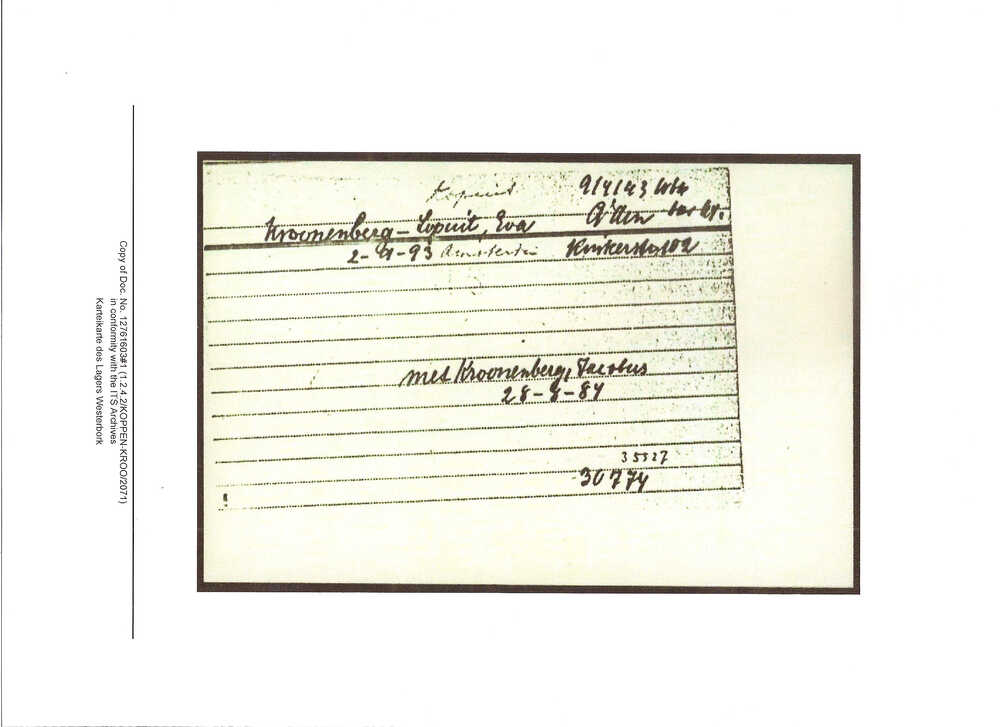 Copy of Doc. No. 12761603#1 (1.2.4.2/KOPPEN-KROO/2071)
in conformity with the ITS Archives
Karteikarte des Lagers Westerbork
9/4/43
Kroonenberg - Lopuit, Eva A'dam
93 Amsterdam
met Kroonenberg, Jacobus
28-8-84
35327
30774